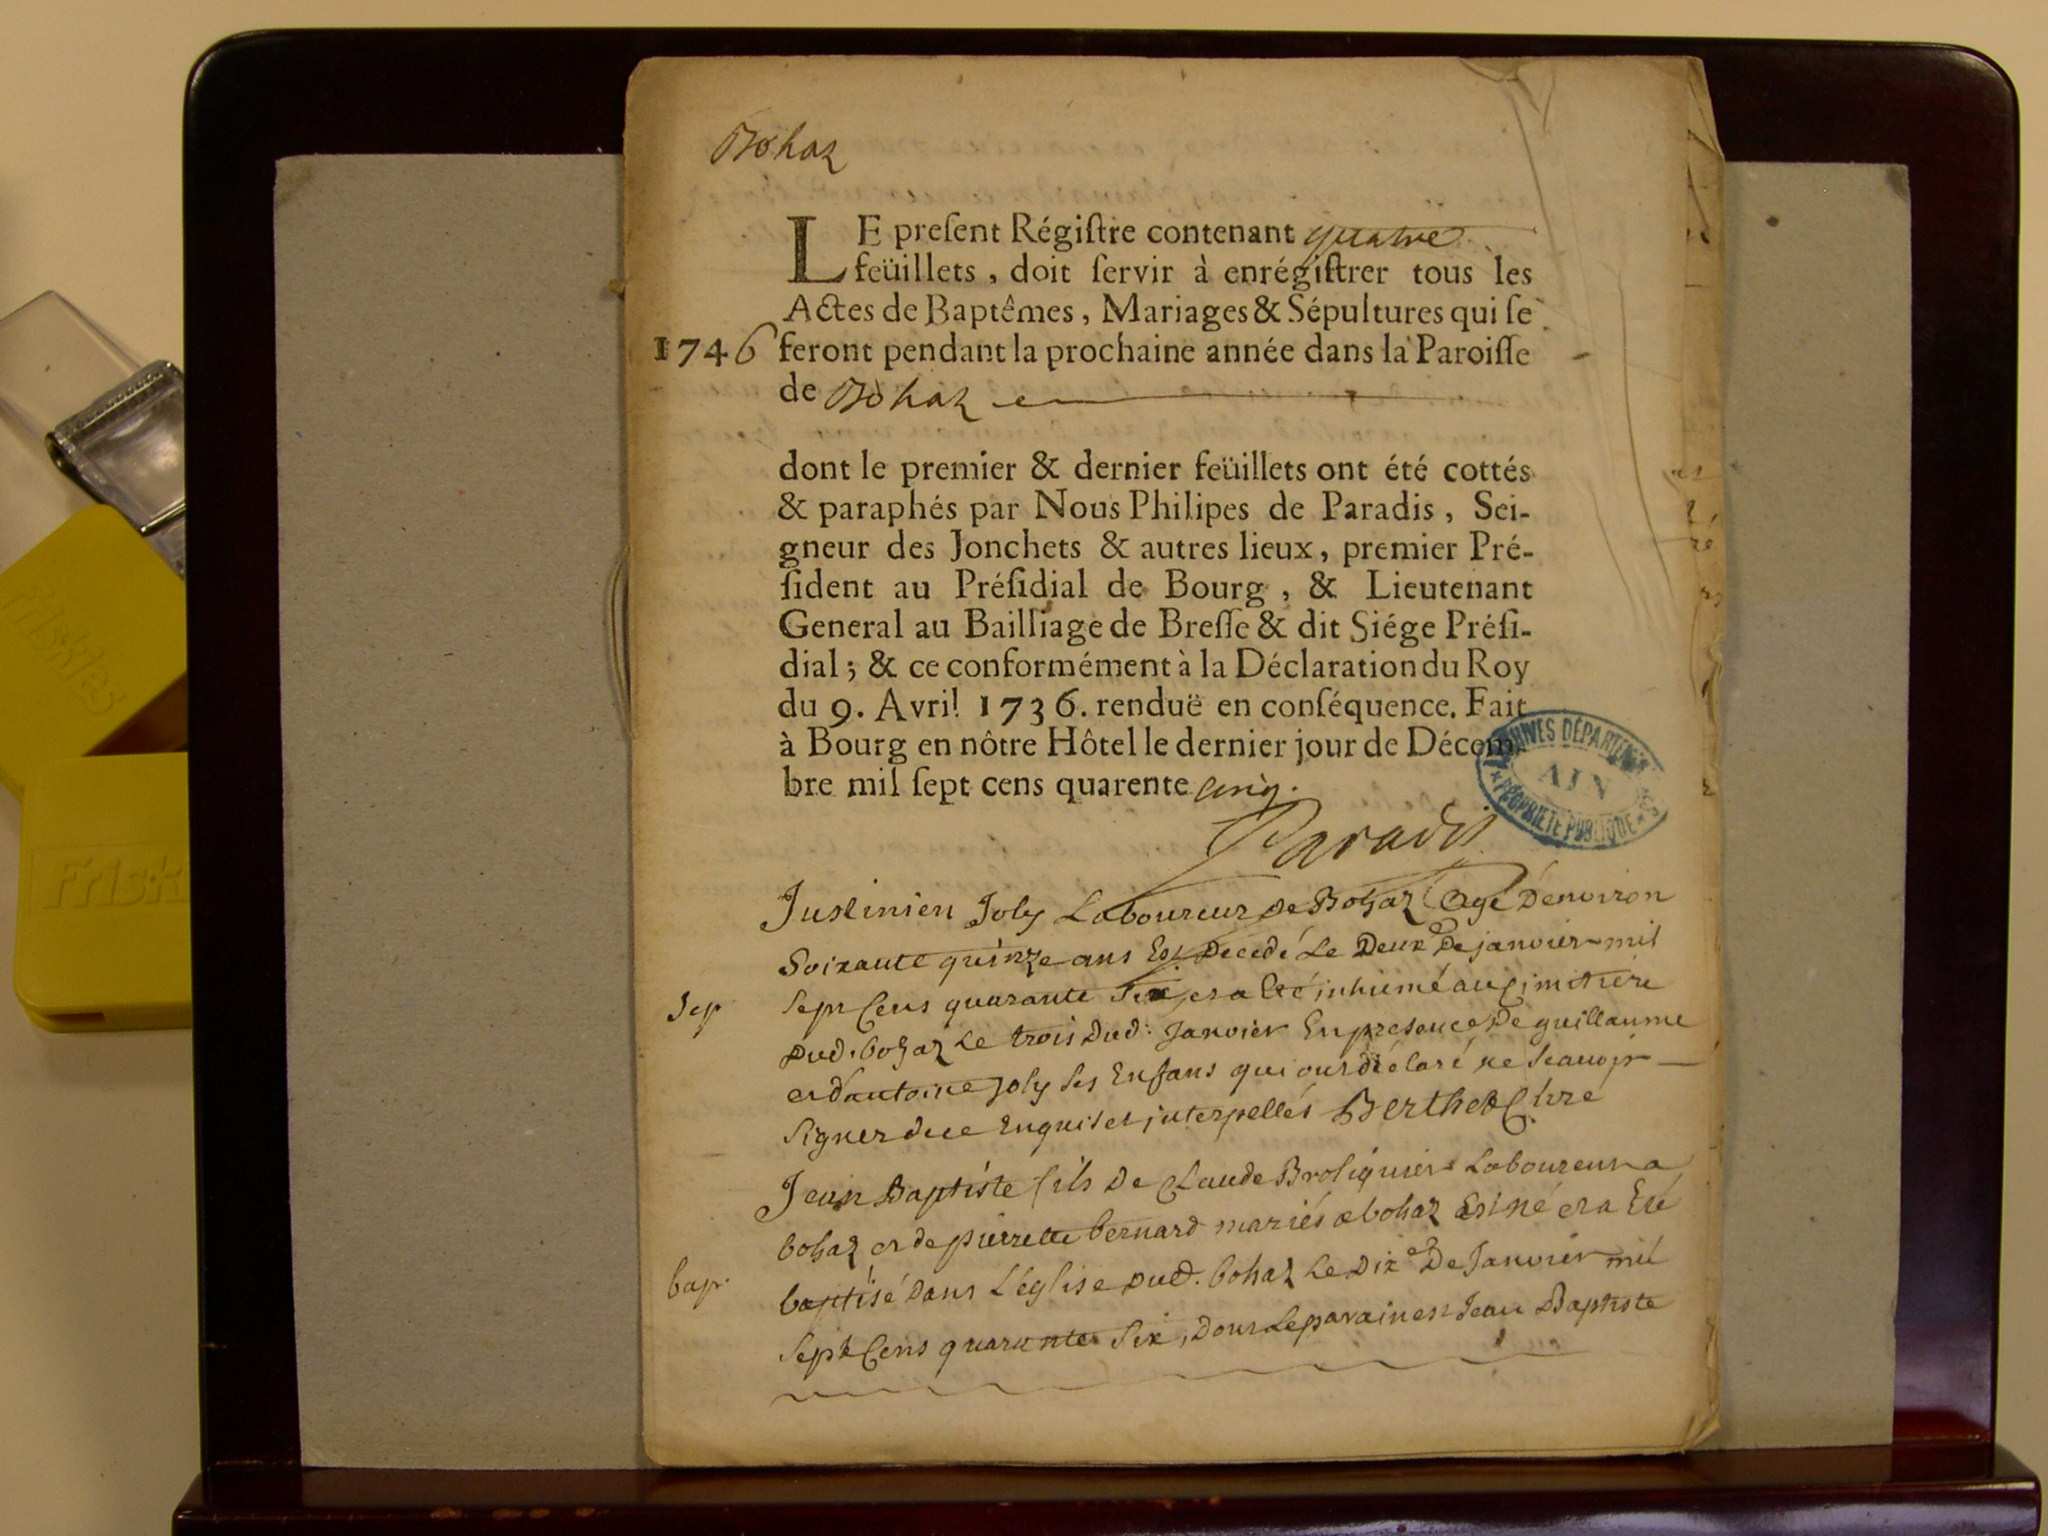 Bohaz
LE preſent Régiſtre contenant quatre
feüillets, doit ſervir à enrégiſtrer tous les
Actes de Baptêmes, Mariages & Sépultures qui ſe
1746 feront pendant la prochaine année dans la Paroiſſe
de Bohaz
dont le premier & dernier feüillets ont été cottés
& paraphés par Nous Philipes de Paradis, Sei-
gneur des Jonchets & autres lieux, premier Pré-
ſident au Préſidial de Bourg, & Lieutenant
General au Bailliage de Breſſe & dit Siége Préſi-
dial; & ce conformément à la Déclaration du Roy
du 9. Avril 1736. renduë en conſéquence. Fait
à Bourg en nôtre Hôtel le dernier jour de Décem-
bre mil ſept cens quarente cinq.
ARCHIVES DÉPARTEM
AIN
PROPRIÉTÉ PUBLIQUE
Paradis
Justinien Joly Laboureur de Bohaz Agé D'environ
Soixante quinze ans Est Decedé Le Deux De janvier mil
Sep Sept Cens quarante Six, et a Eté inhumé au Cimitiere
Dud. bohaz Le trois Dud: Janvier En presence De guillaume
et d'antoine Joly ses Enfans qui ont déclaré ne Scavoir
Signer de ce Enquis et interpellés Berthet Curé
Jean Baptiste fils De Claude Broliquier Laboureur a
bohaz et de pierrette bernard mariés a bohaz Est né et a Eté
bap. baptisé Dans L'église Dud. bohaz Le Dix De Janvier mil
Sept Cens quarante Six, Dont Le parain est Jean Baptiste
Friskies
Frisk